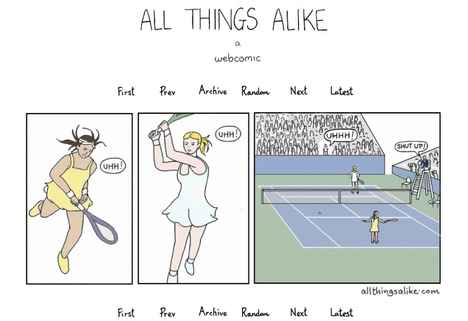 ALL THINGS ALIKE
a
webcomic
First Prev Archive Random Next Latest
UHH!
UHH!
UHHH!
SHUT UP!
allthingsalike.com
First Prev Archive Random Next Latest